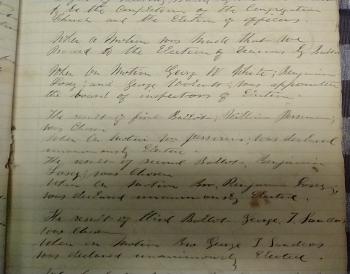 to be the Completion of the Congregation
Church and the Election of officers.
When a Motion was Made that we
Proceed to the Election of Deacons by Ballot
When On Motion George W White; Benjamin
and George was appointed
the board of inspectors of Election.
The result of first Ballot; William
was Chosen
When On Motion Bro was declared
unanimously Elected.
The result of second Ballot, Benjamin
was Chosen
When On Motion Bro, Benjamin
was declared unanimously Elected.
The result of third Ballot George T. Sanders
was Chosen
When on Motion Bro George T Sanders
was declared unanimously Elected.